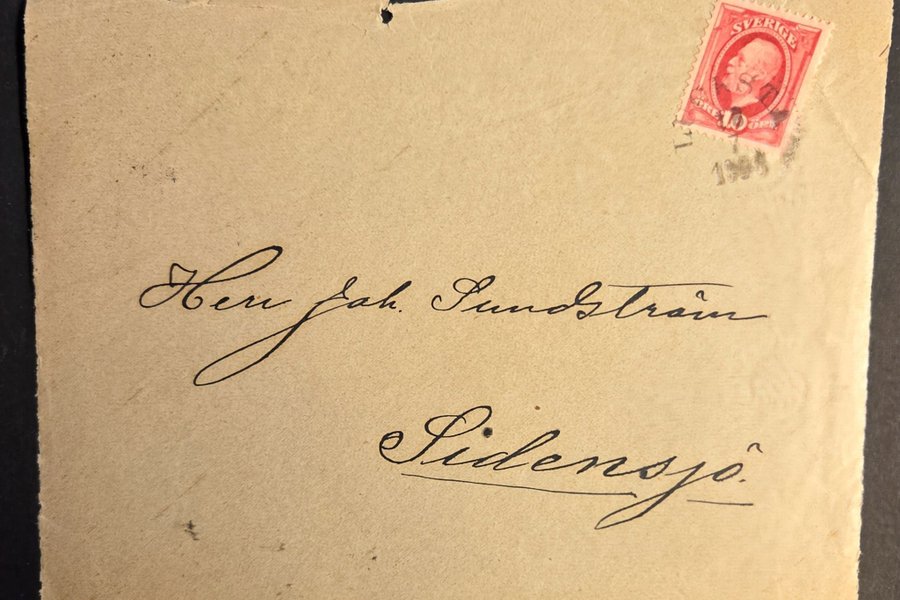 SVERIGE
TIO 10 ÖRE
Herr Joh. Sundström
Sidensjö.